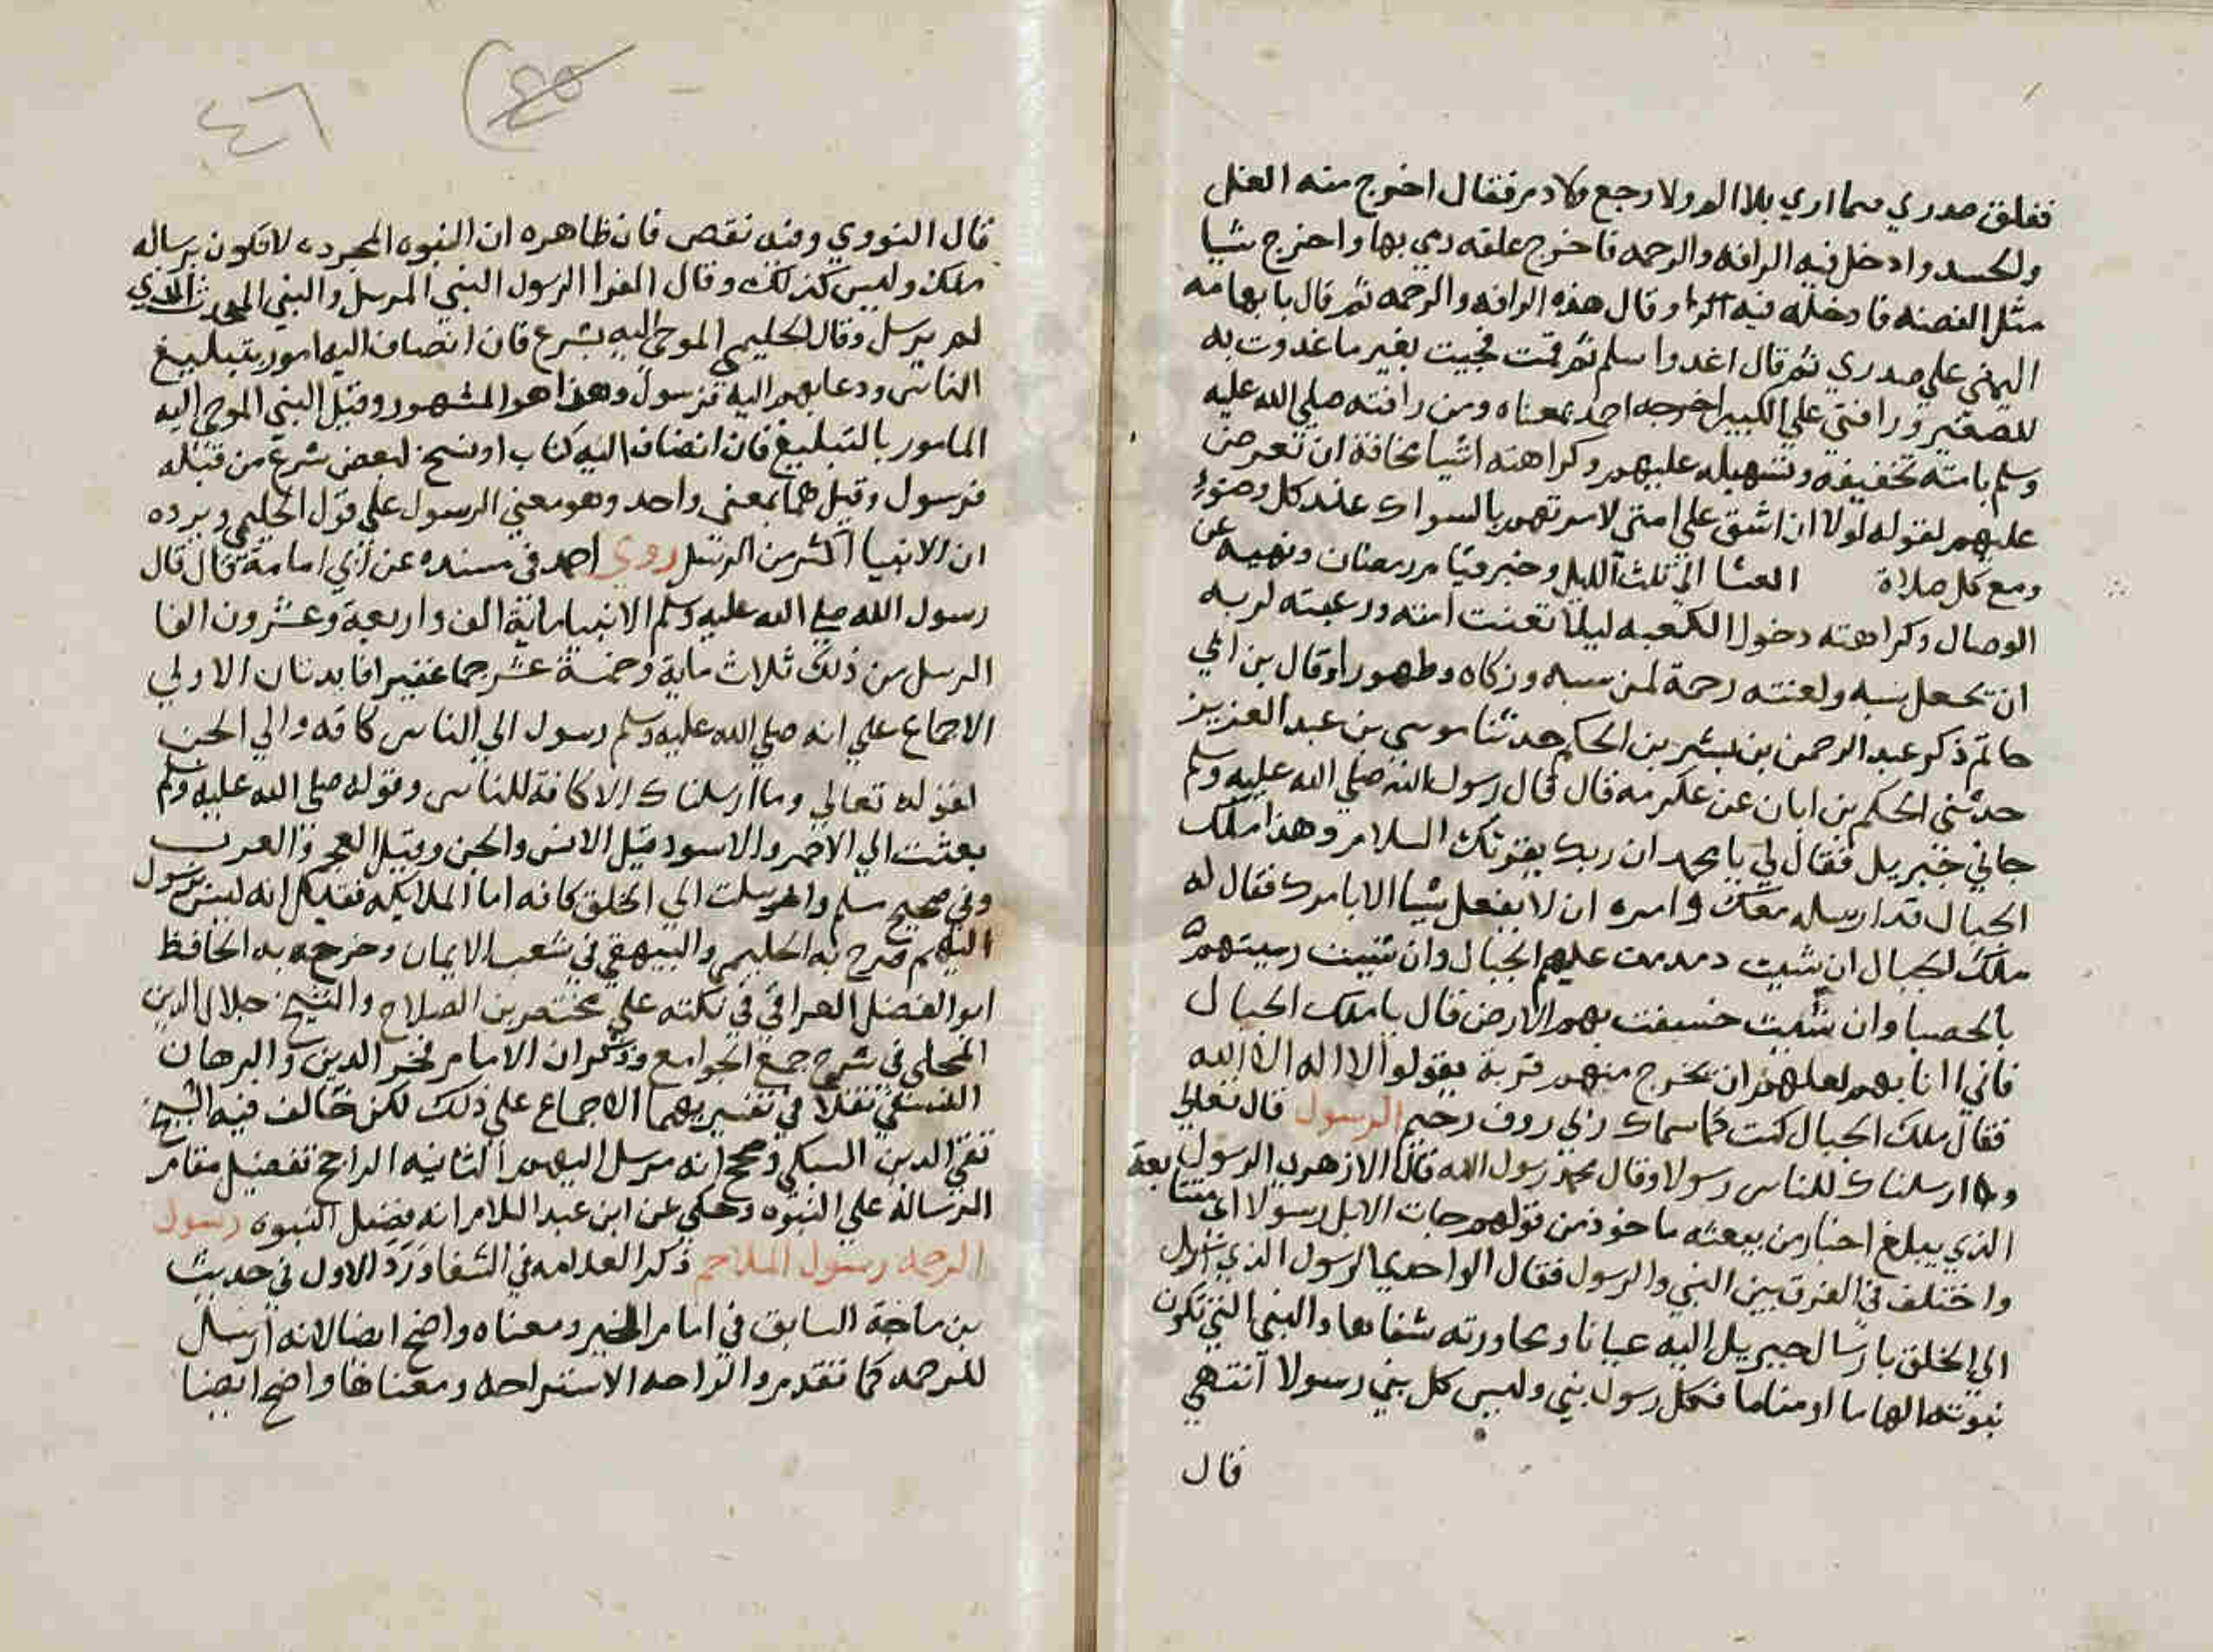 ففلق صدري مما اري بلا الم ولا رجع ولا دم فقال اخرج منه الغل
والحسد وادخل فيه الرافه والرحمه فاخرج علقه رمي بها واخرج شيا
مثل الفضه فادخله فيه وقال هذه الرافه والرحمه ثم قال بابهامه
اليمني علي صدري ثم قال اغدوا سلم ثم قمت فجيت بغير ما غدوت به
للصغير ورافتي علي الكبير اخرجه احمد بمعناه ومن رافته صلي الله عليه
وسلم بامته تخفيفه وتسهيله عليهم وكراهته اشيا مخافة ان تعرض
عليهم لقوله لولا ان اشق علي امتي لامرتهم بالسواك عند كل وضوء
ومع كل صلاة العشا الي ثلث الليل وخبر قيام رمضان ونهيه عن
الوصال وكراهته دخول الكعبه ليلا تعنت امته ورغبته لربه
ان يجعل سبه ولعنته رحمة لمن سبه وزكاه وطهورا وقال بن ابي
حاتم ذكر عبد الرحمن بن بشر بن الحكم حدثنا موسي بن عبد العزيز
حدثني الحكم بن ابان عن عكرمه قال قال رسول الله صلي الله عليه وسلم
جاني جبريل فقال لي يا محمد ان ربك يقرئك السلام وهذا ملك
الجبال قد ارسله معك وامره ان لا يفعل شيا الا بامرك فقال له
ملك الجبال ان شيت دمدمت عليهم الجبال وان شيت رميتهم
بالحصبا وان شيت خسفت بهم الارض قال يا ملك الجبال
فاني انا بهم لعلهم ان يخرج منهم ذرية يقولوا لا اله الا الله
فقال ملك الجبال كنت كما سماك ربي روف رحيم الرسول قال تعالي
وما ارسلناك للناس رسولا وقال محمد رسول الله قال الازهري الرسول
الذي يبلغ اخبار من بعثه ماخوذ من قولهم جات الابل رسولا اي متتابعة
واختلف في الفرق بين النبي والرسول فقال الواحدي الرسول الذي ارسل
الي الخلق بارسال جبريل اليه عيانا ومحاورته شفاها والنبي الذي تكون
نبوته الهاما او مناما فكل رسول نبي وليس كل نبي رسولا انتهي
قال
٤٦
٤٥
قال النووي وفيه نقص فان ظاهره ان النبوه المجرده لا تكون برساله
ملك وليس كذلك وقال الفرا الرسول النبي المرسل والنبي المحدث الذي
لم يرسل وقال الحليمي الموحي اليه بشرع فان انضاف اليه امور بتبليغ
الناس ودعايهم اليه فرسول وهذا هو المشهور وقيل النبي الموحي اليه
المامور بالتبليغ فان انضاف اليه كتاب او نسخ لبعض شرع من قبله
فرسول وقيل هما بمعني واحد وهو معني الرسول علي قول الحليمي ويرده
ان الانبيا اكثر من الرسل روي احمد في مسنده عن ابي امامة قال قال
رسول الله صلي الله عليه وسلم الانبيا ماية الف واربعة وعشرون الفا
الرسل من ذلك ثلاث ماية وخمسة عشر جما غفيرا فايدتان الاولي
الاجماع علي انه صلي الله عليه وسلم رسول الي الناس كافه والي الجن
لقوله تعالي وما ارسلناك الا كافة للناس وقوله صلي الله عليه وسلم
بعثت الي الاحمر والاسود قيل الانس والجن وقيل العجم والعرب
وفي صحيح مسلم وارسلت الي الخلق كافه اما الملايكه فقيل انه ليس برسول
اليهم صرح به الحليمي والبيهقي في شعب الايمان وخرجه به الحافظ
ابو الفضل العراقي في نكته علي مختصر بن الصلاح والشيخ جلال الدين
المحلي في شرح جمع الجوامع وذكر ان الامام فخر الدين والبرهان
النسفي نقلا في تفسيريهما الاجماع علي ذلك لكن خالف فيه الشيخ
تقي الدين السبكي وصحح انه مرسل اليهم الثانيه الراجح تفضيل مقام
الرسالة علي النبوه وحكي عن ابن عبد السلام انه يفضل النبوه رسول
الرحمه رسول الملاحم ذكر العلامه في الشفا ورد الاول في حديث
بن ماجة السابق في امام الخير ومعناه واضح ايضا لانه ارسل
للرحمه كما تقدم والراحه الاستراحه ومعناها واضح ايضا